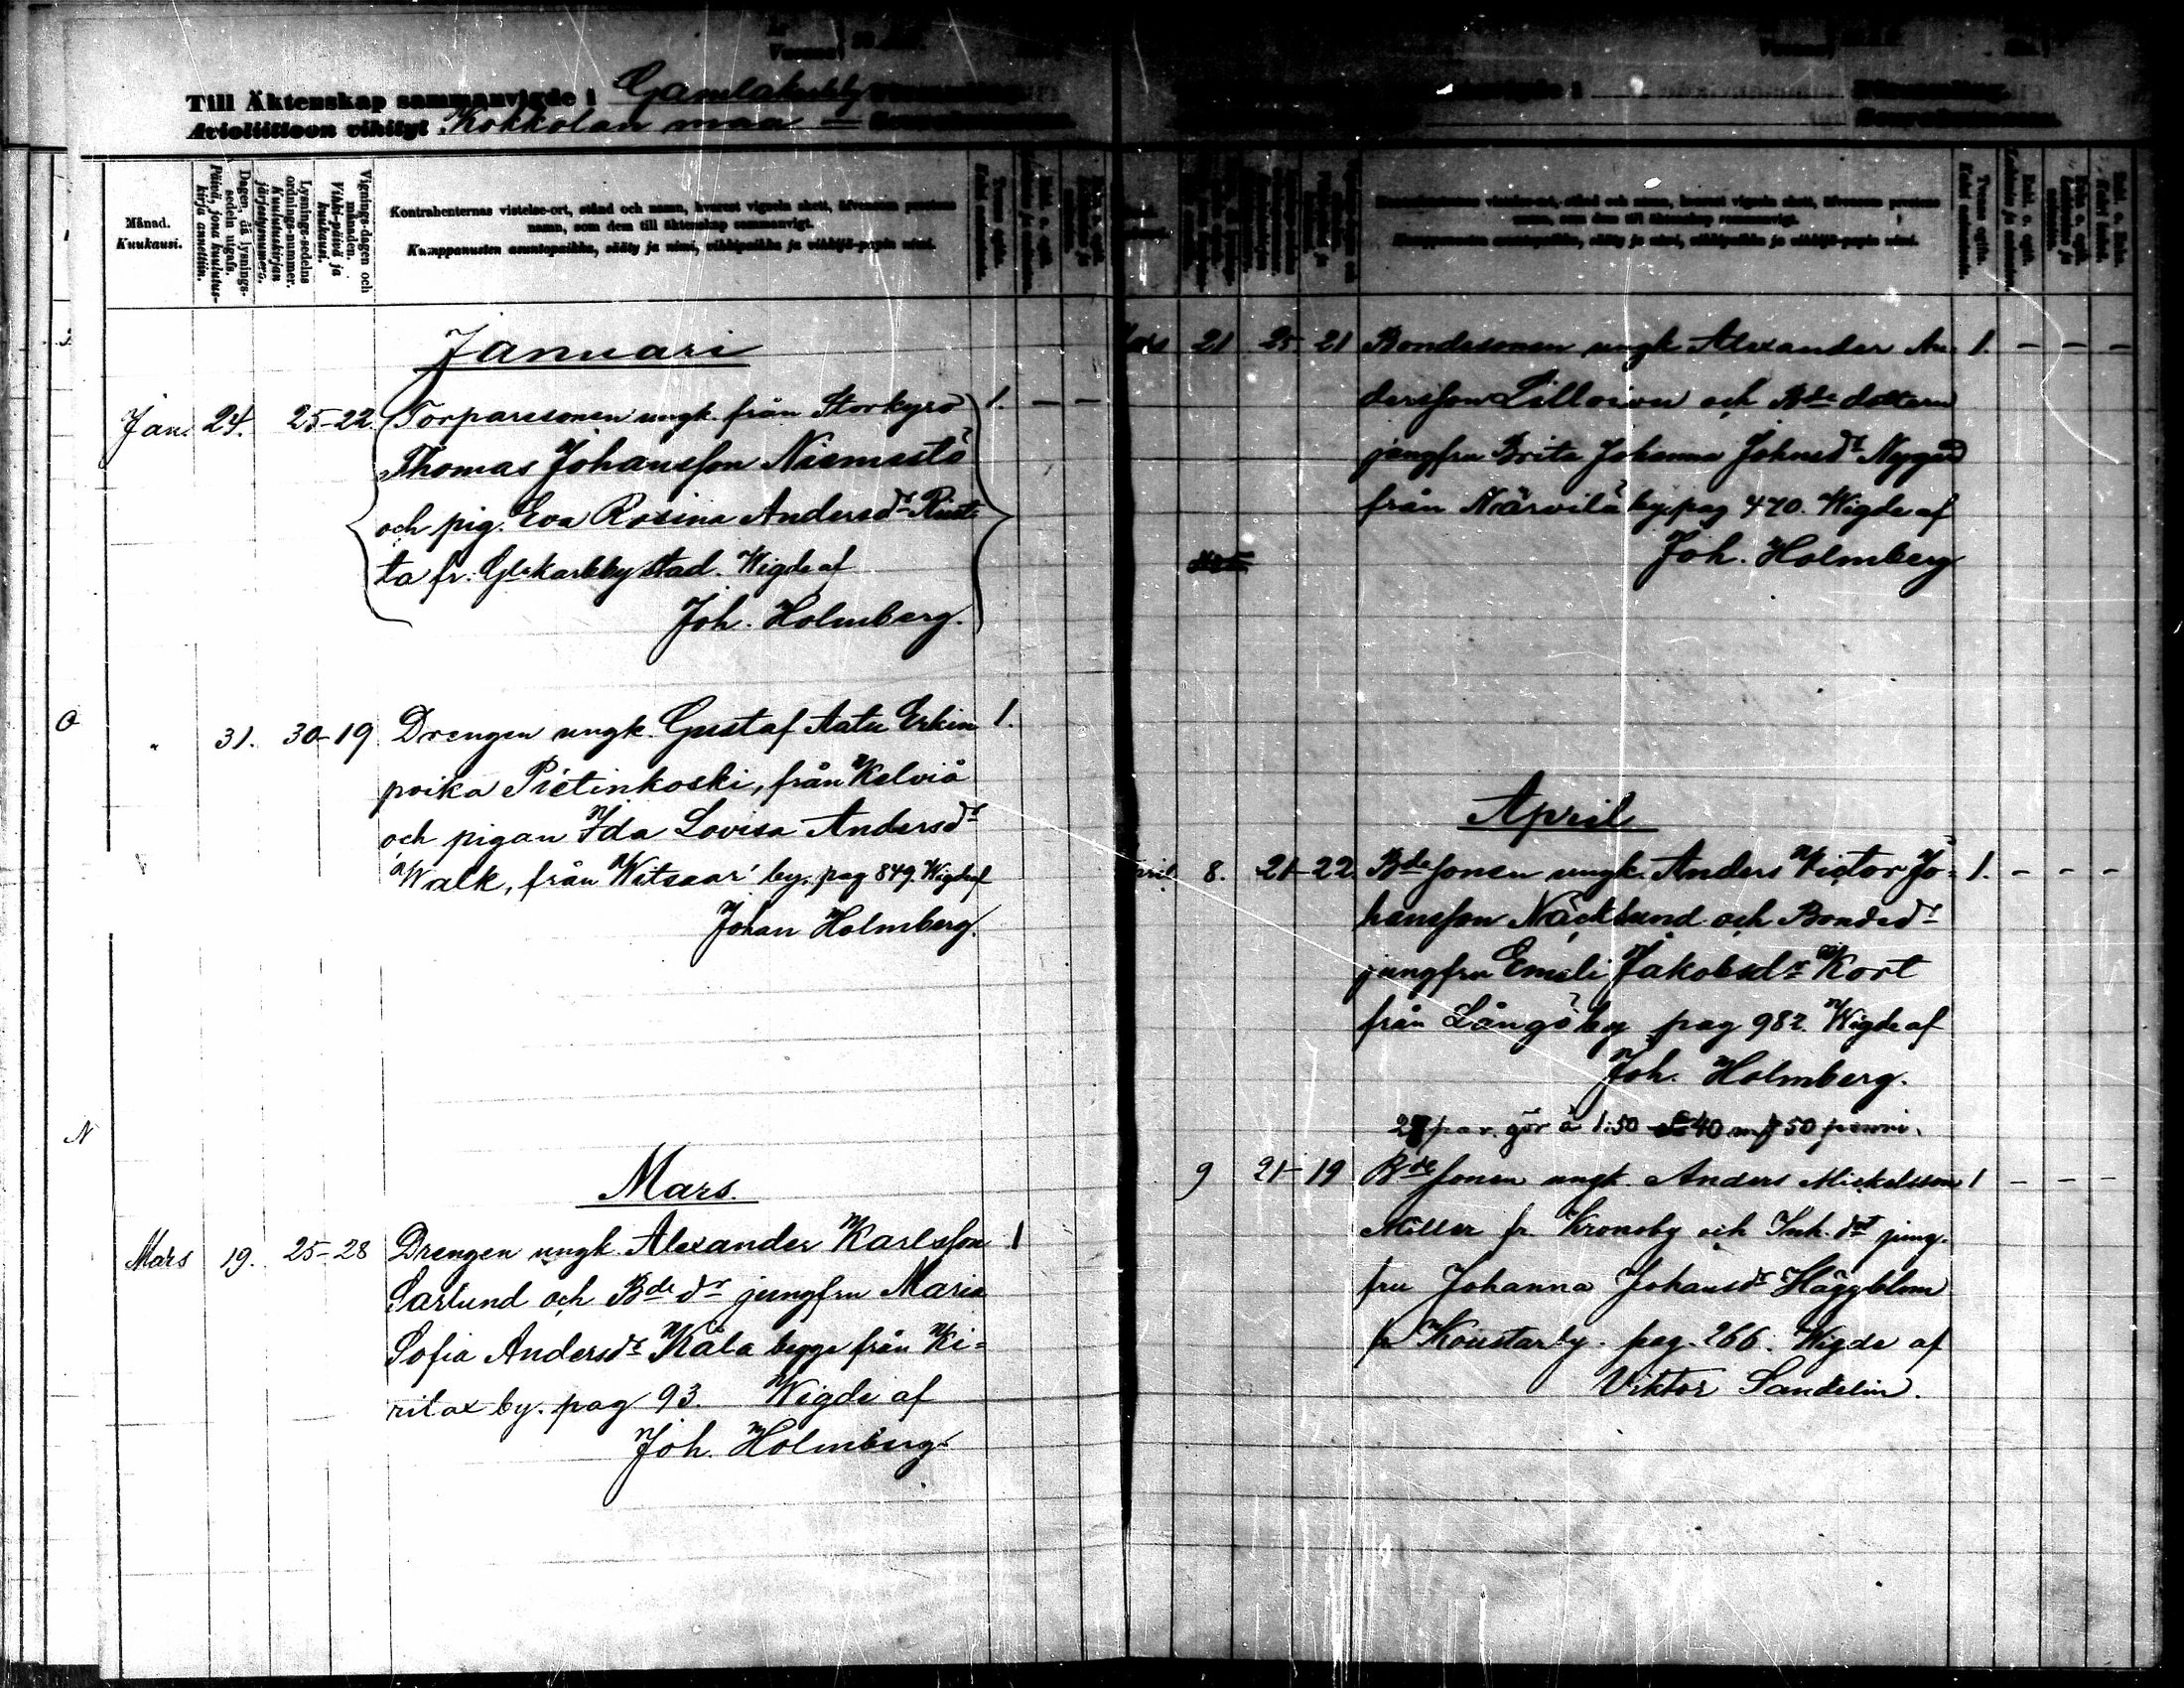 Till Äktenskap sammanvigde i Gamlakarleby
Avioliittoon vihityt Kokkolan maa
Månad.
Kuukausi.
Dagen, då lysnings-
sedeln utgafs.
Päivä, jona kuulutus-
kirja annettiin.
Lysnings-sedelns
ordnings-nummer.
Kuulutuskirjan
järjestysnumero.
Vignings-dagen och
månaden.
Vihki-päivä ja
kuukausi.
Kontrahenternas vistelse-ort, stånd och namn, hvarest vigseln skett, äfvensom persons
namn, som dem till äktenskap sammanvigt.
Kumppanusten asuntopaikka, sääty ja nimi, vihkipaikka ja vihkijä-papin nimi.
Januari
Jan. 24. 25-22 Torparesonen ungk. från Storkyro 1. - -
Thomas Johansson Niemistö
och pig. Eva Rosina Andersdr
ta fr. Glakarleby stad. Wigde af
Joh. Holmberg.
" 31. 30-19 Drengen ungk. Gustaf Aatu Erkin 1.
poika Pietinkoski, från Kelviå
och pigan Ida Lovisa Andersdr
Walk, från Witsaar by. pag 849. Wigde af
Johan Holmberg.
Mars.
Mars 19. 25-28 Drengen ungk. Alexander Karlsson 1
Sarlund och Bde dr jungfru Maria
Sofia Andersdr Kåla begge från Ki=
rilax by. pag 93. Wigde af
Joh. Holmberg.
Mars 21 25-21 Bondesonen ungk. Alexander An- 1. - - -
dersson Lilloinen och Bde dottern
jungfru Brita Johanna Johnsdr Nygård
från Närvilä by. pag 470. Wigde af
Joh. Holmberg
April
April 8. 21-22. Bde sonen ungk. Anders Victor Jo= 1. - - -
hansson Näcklund och Bondedr
jungfru Emeli Jakobsdr Kort
från Långö by pag 982. Wigde af
Joh. Holmberg.
27 par. gör à 1:50 40 m 50 penni.
9 21-19 Bde sonen ungk. Anders Mickelsson 1 - - -
Möller fr. Kronoby och Inh. dot jung-
fru Johanna Johansdr Häggblom
fr Koustar by. pag. 266. Wigde af
Viktor Sandelin.